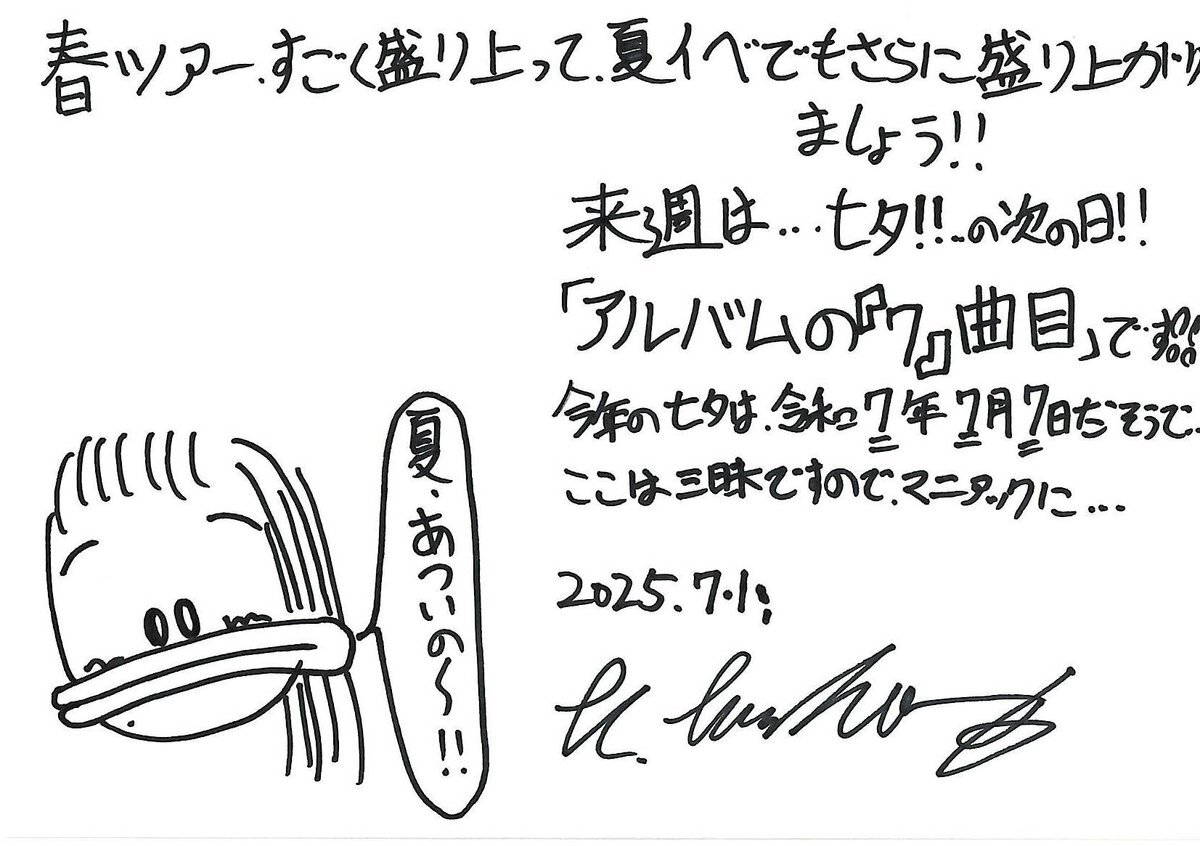 春ツアー、すごく盛り上って、夏イベでもさらに盛り上がり
ましょう!!
来週は…七夕!!…の次の日!!
「アルバムの『7』曲目」です
今年の七夕は、令和7年7月7日だそうで、
ここは三昧ですので、マニアックに…
夏、あついの〜!!
2025.7.1;